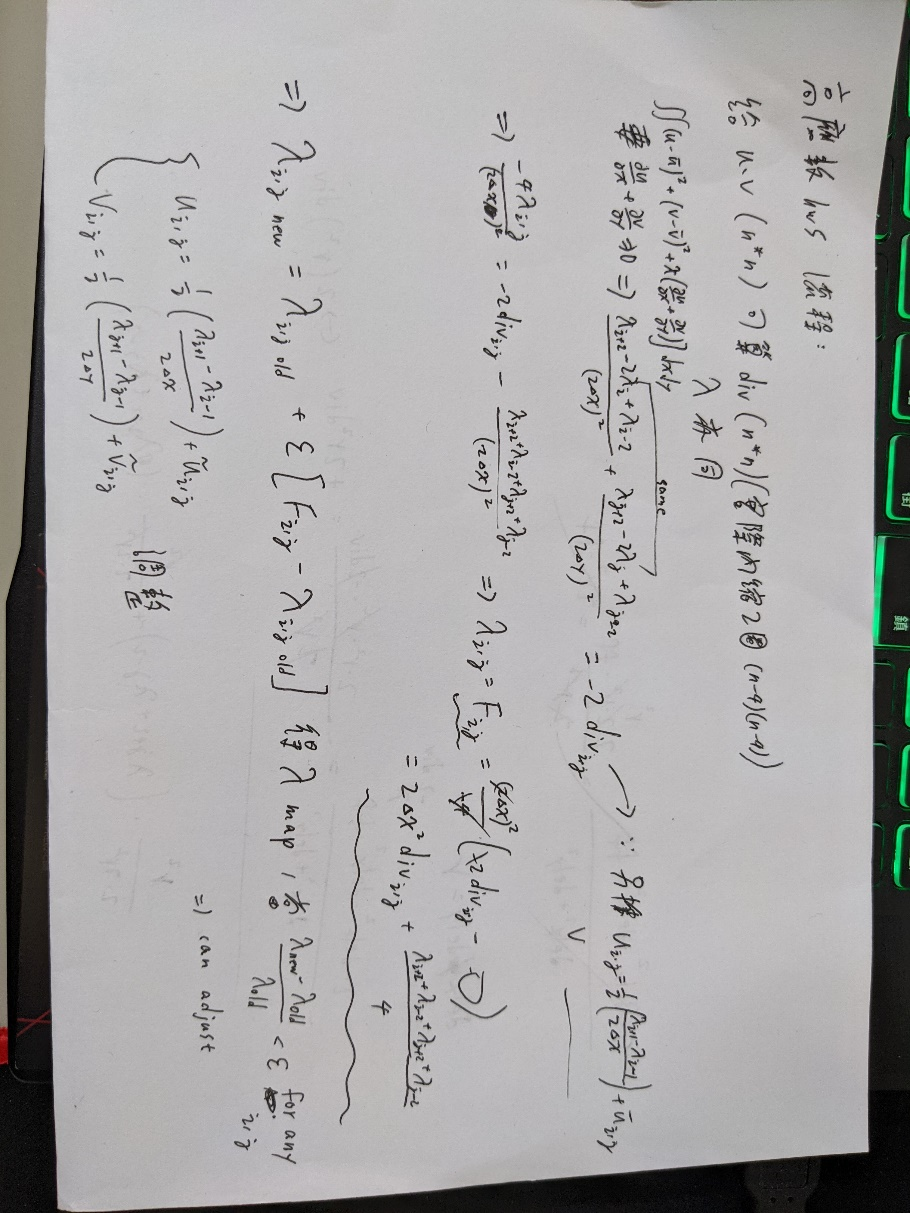 高應數 hw5 流程:
給 u.v (n*n) 可算 div (n*n) (實際內縮2圈 (n-4)(n-4))
λ 未知
∬(u-ū)² + (v-v̄)² + λ(∂u/∂x + ∂v/∂y)] dxdy
same
∂u/∂x + ∂v/∂y → 0 => (λi+2 - 2λi + λi-2)/(2Δx)² + (λj+2 - 2λj + λj-2)/(2ΔY)² = -2 div i,j → ∵ ui,j = 1/2 ((λi+1 - λi-1)/2Δx) + ūi,j
V
=> -4λi,j/(2Δx)² = -2 div i,j - (λi+2 + λi-2 + λj+2 + λj-2)/(2Δx)² => λi,j = Fi,j = (2Δx)²/+4 (+2 div i,j -
= 2Δx² div i,j + (λi+2 + λi-2 + λj+2 + λj-2)/4
=> λi,j new = λi,j old + ε [Fi,j - λi,j old] 得 λ map, 若 (λnew - λold)/λold < ε for any i,j
=> can adjust
{ ui,j = 1/2 ((λi+1 - λi-1)/2Δx) + ũi,j
Vi,j = 1/2 ((λj+1 - λj-1)/2ΔY) + ṽi,j
調整
鎖